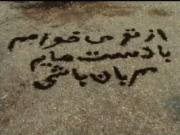 از تو می خواهم
با دست هایم
مهربان باشی